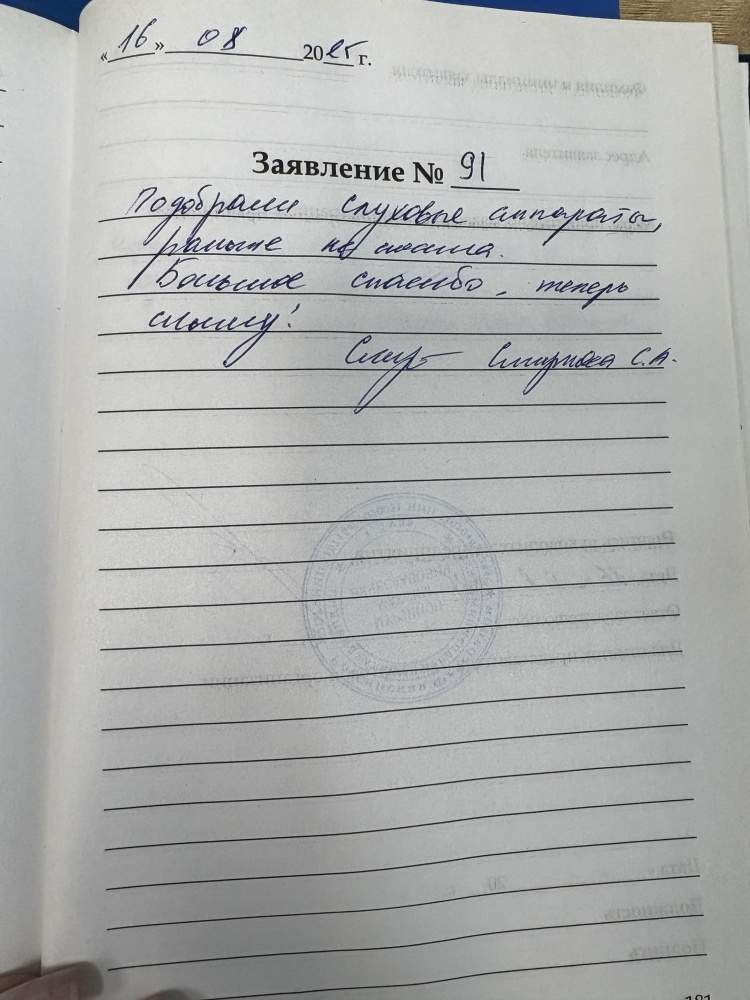 «16» 08 2025 г.
Заявление № 91
Подобрали слуховые аппараты,
раньше не слышала.
Большое спасибо, теперь
слышу!
Смирнова С.А.
181